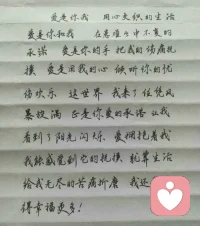 爱是你我 用心交织的生活
爱是你和我 在患难之中不变的
承诺 爱是你的手 把我的伤痛抚
摸 爱是用我的心 倾听你的忧
伤欢乐 这世界 我来了 任凭风
暴漩涡 是你爱的承诺 让我
看到了阳光闪烁 爱拥抱着我
我能感觉到它的抚摸 就算生活
给我无尽的苦痛折磨 我还
得幸福更多!